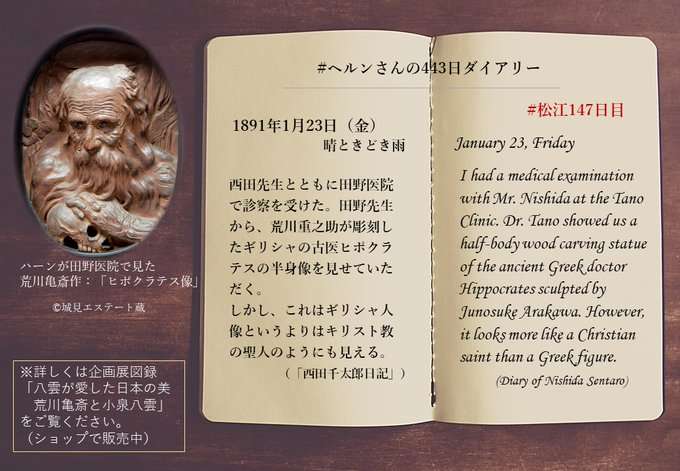 #ヘルンさんの443日ダイアリー
1891年1月23日（金）
晴ときどき雨
西田先生とともに田野医院
で診察を受けた。田野先生
から、荒川重之助が彫刻し
たギリシャの古医ヒポクラ
テスの半身像を見せていた
だく。
しかし、これはギリシャ人
像というよりはキリスト教
の聖人のようにも見える。
（「西田千太郎日記」）
#松江147日目
January 23, Friday
I had a medical examination
with Mr. Nishida at the Tano
Clinic. Dr. Tano showed us a
half-body wood carving statue
of the ancient Greek doctor
Hippocrates sculpted by
Junosuke Arakawa. However,
it looks more like a Christian
saint than a Greek figure.
(Diary of Nishida Sentaro)
ハーンが田野医院で見た
荒川亀斎作：「ヒポクラテス像」
©城見エステート蔵
※詳しくは企画展図録
「八雲が愛した日本の美
荒川亀斎と小泉八雲」
をご覧ください。
（ショップで販売中）